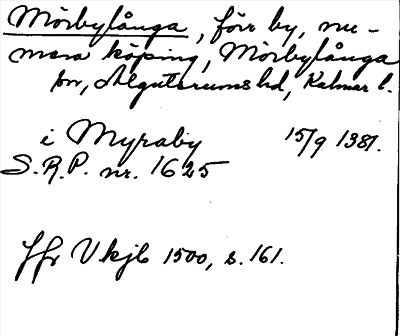 Mörbylånga, förr by, nu-
mera köping, Mörbylånga
sn, Algutsrums hd, Kalmar l.
i Myraby 15/9 1381.
S.R.P. nr. 1625
Jfr Vkjb 1500, s. 161.